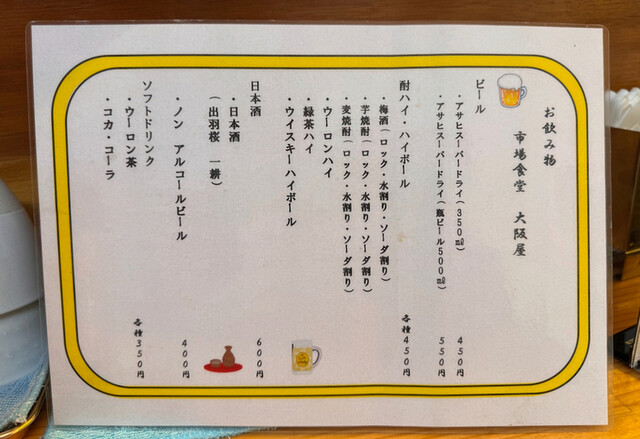 お飲み物
市場食堂 大阪屋
ビール
・アサヒスーパードライ(350㎖) 450円
・アサヒスーパードライ(瓶ビール500㎖) 550円
酎ハイ・ハイボール 各種450円
・梅酒(ロック・水割り・ソーダ割り)
・芋焼酎(ロック・水割り・ソーダ割り)
・麦焼酎(ロック・水割り・ソーダ割り)
・ウーロンハイ
・緑茶ハイ
・ウイスキーハイボール
日本酒
・日本酒 600円
(出羽桜 一耕)
・ノン アルコールビール 400円
ソフトドリンク 各種350円
・ウーロン茶
・コカ・コーラ